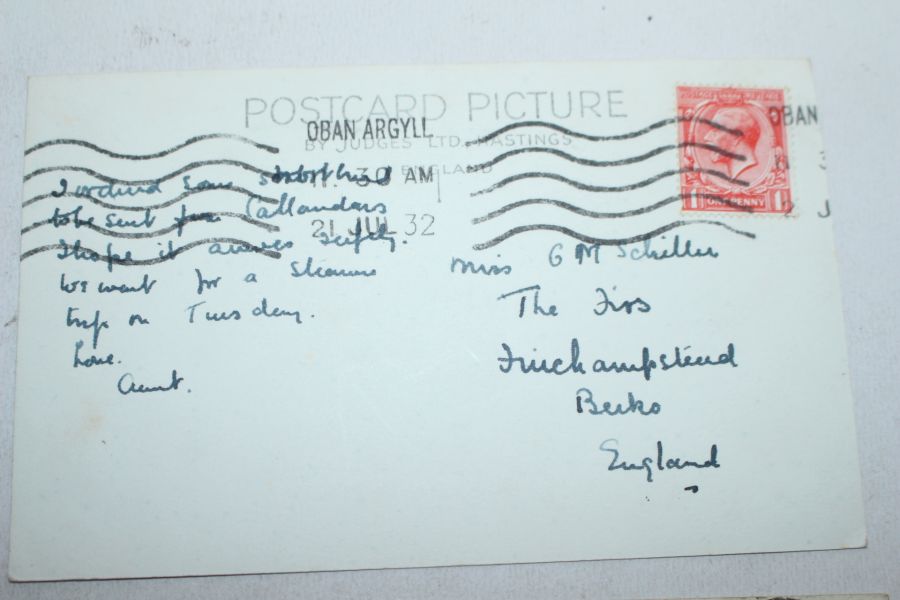 POSTCARD PICTURE
BY JUDGES LTD. HASTINGS
ENGLAND
OBAN ARGYLL
30 AM
21 JUL 32
OBAN
POSTAGE REVENUE
ONE PENNY
I ordered some shortbread
to be sent from Callanders
I hope it arrives safely.
We went for a steamer
trip on Tuesday.
Love.
Aunt.
Miss G M Schiller
The Firs
Finchampstead
Berks
England